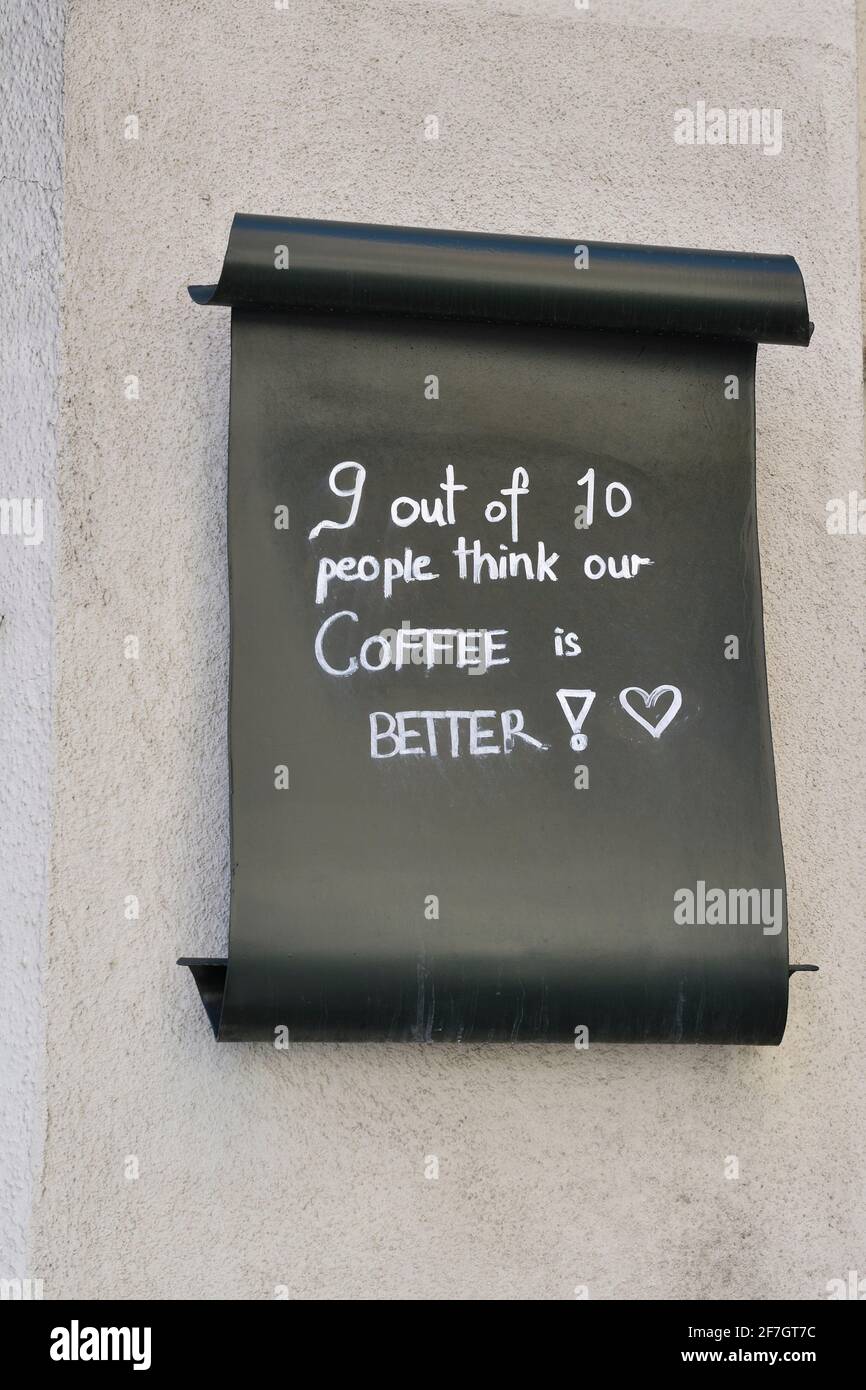 9 out of 10
people think our
COFFEE is
BETTER! ♡
alamy
Image ID: 2F7GT7C
www.alamy.com